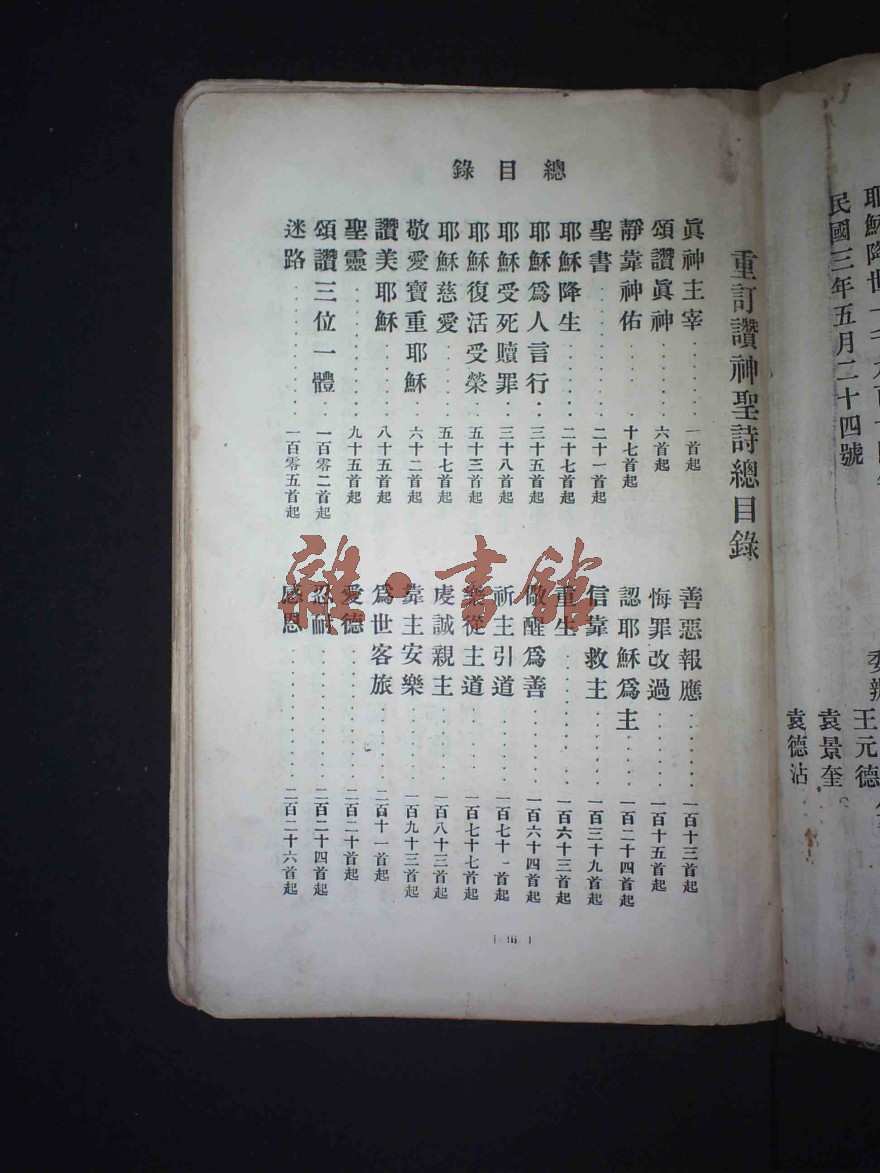 耶穌降世一千九百十四年
民國三年五月二十四號
王元德
袁景奎
袁德沾
總目錄
重訂讚神聖詩總目錄
眞神主宰......一首起
頌讚眞神......六首起
靜靠神佑......十七首起
聖書......二十一首起
耶穌降生......二十七首起
耶穌爲人言行......三十五首起
耶穌受死贖罪......三十八首起
耶穌復活受榮......五十三首起
耶穌慈愛......五十七首起
敬愛寶重耶穌......六十二首起
讚美耶穌......八十五首起
聖靈......九十五首起
頌讚三位一體......一百零二首起
迷路......一百零五首起
善惡報應......一百十三首起
悔罪改過......一百十五首起
認耶穌爲主......一百二十四首起
信靠救主......一百三十九首起
重生......一百六十三首起
儆醒爲善......一百六十四首起
祈主引道......一百七十一首起
樂從主道......一百七十七首起
虔誠親主......一百八十三首起
靠主安樂......一百九十三首起
爲世客旅......二百十一首起
愛德......二百二十首起
忍耐......二百二十四首起
感恩......二百二十六首起
[ iii ]
雜·書館